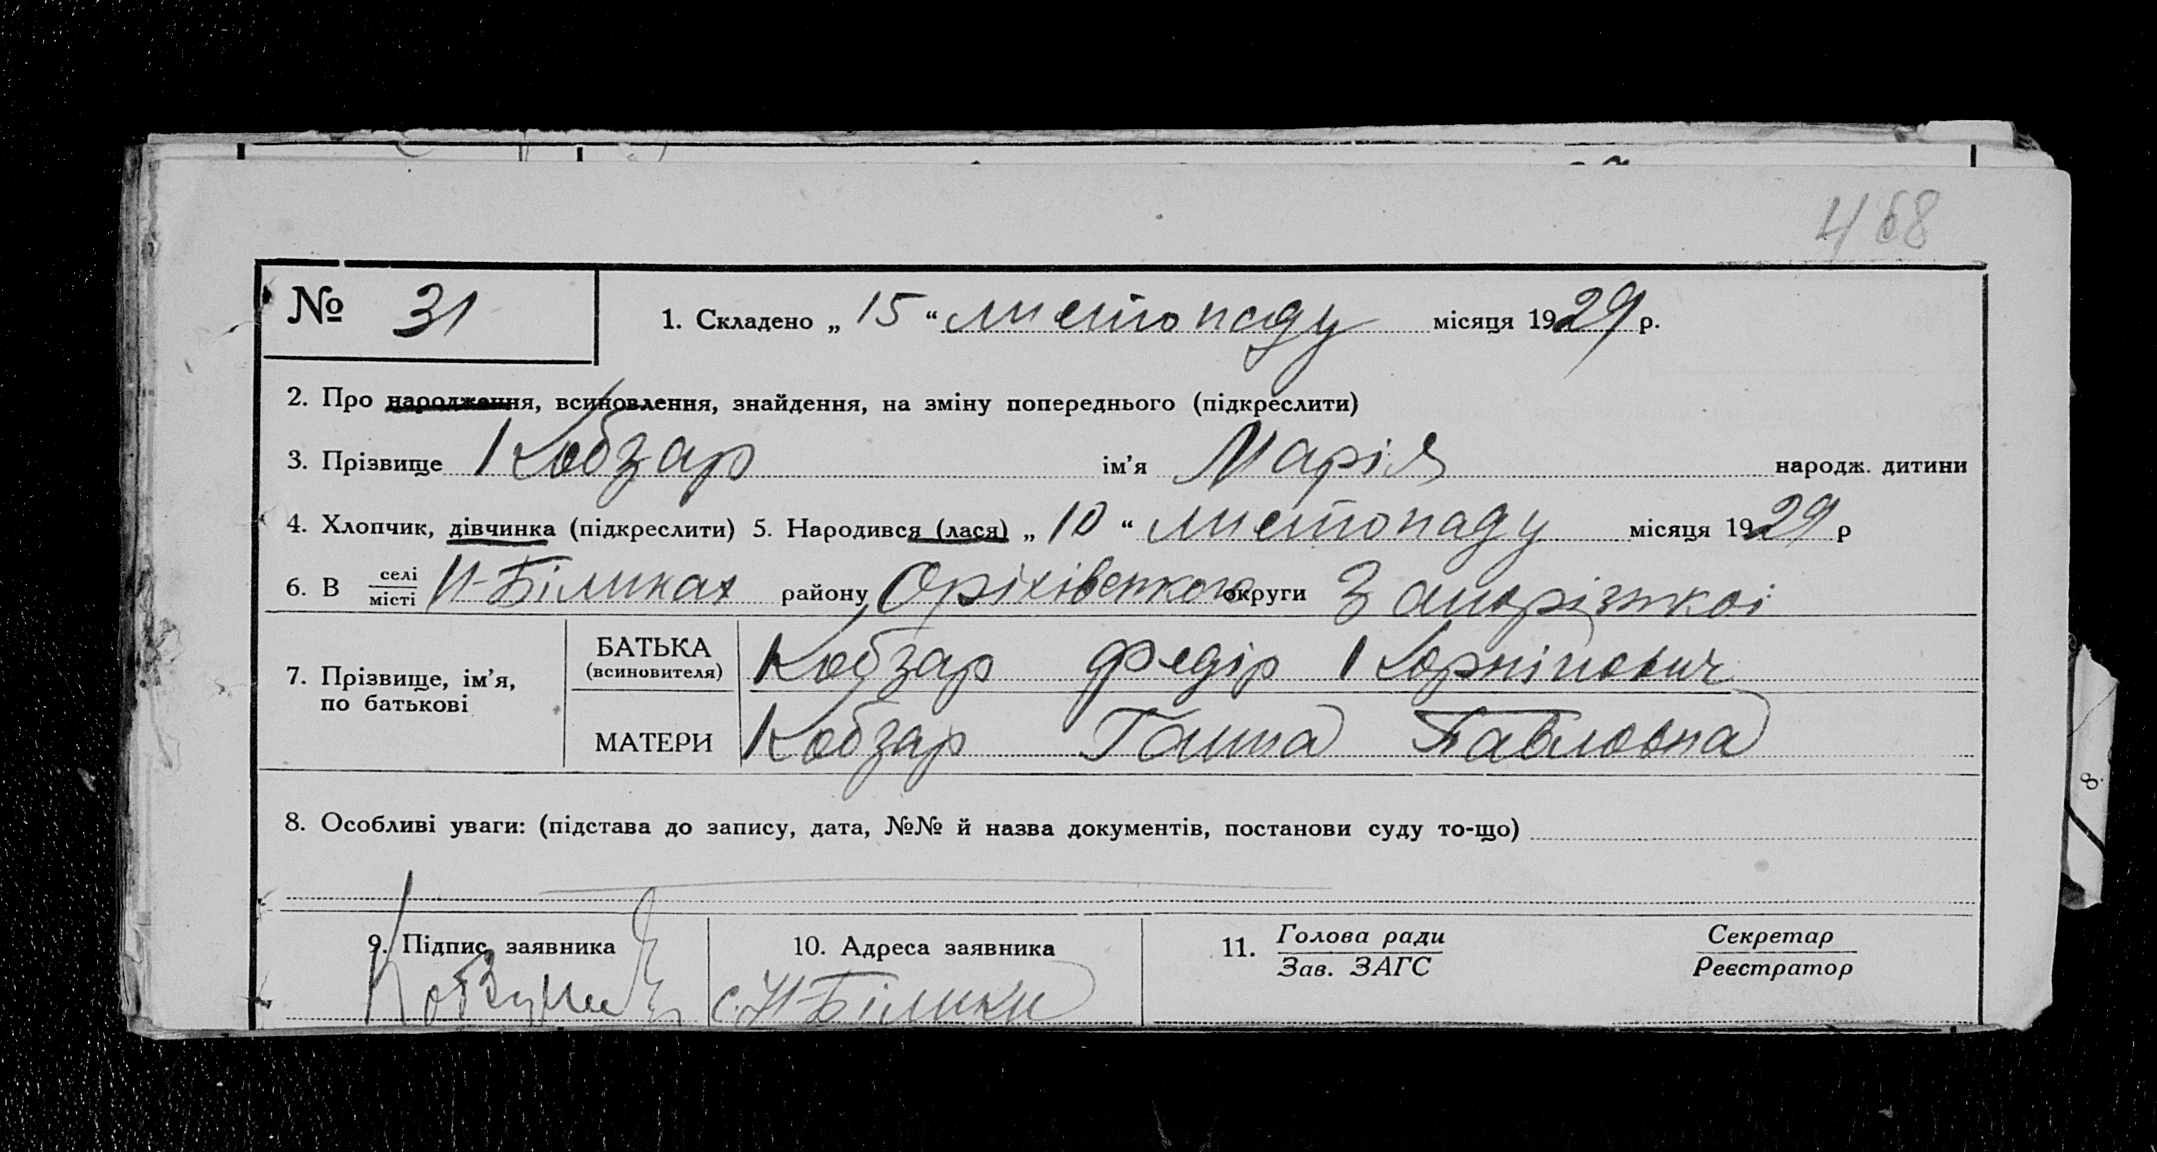 468
№ 31 1. Складено „ 15 “ листопаду місяця 1929 р.
2. Про народження, всиновлення, знайдення, на зміну попереднього (підкреслити)
3. Прізвище Кобзар ім’я Марія народж. дитини
4. Хлопчик, дівчинка (підкреслити) 5. Народився (лася) „ 10 “ листопаду місяця 1929 р
6. В селі місті Н-Біликах району Оріхівського округи Запорізкої
7. Прізвище, ім’я, по батькові
БАТЬКА (всиновителя) Кобзар Федір Корнійович
МАТЕРИ Кобзар Ганна Павловна
8. Особливі уваги: (підстава до запису, дата, №№ й назва документів, постанови суду то-що)
9. Підпис заявника 10. Адреса заявника 11. Голова ради Секретар
Зав. ЗАГС Реєстратор
с. Н-Білики
8.